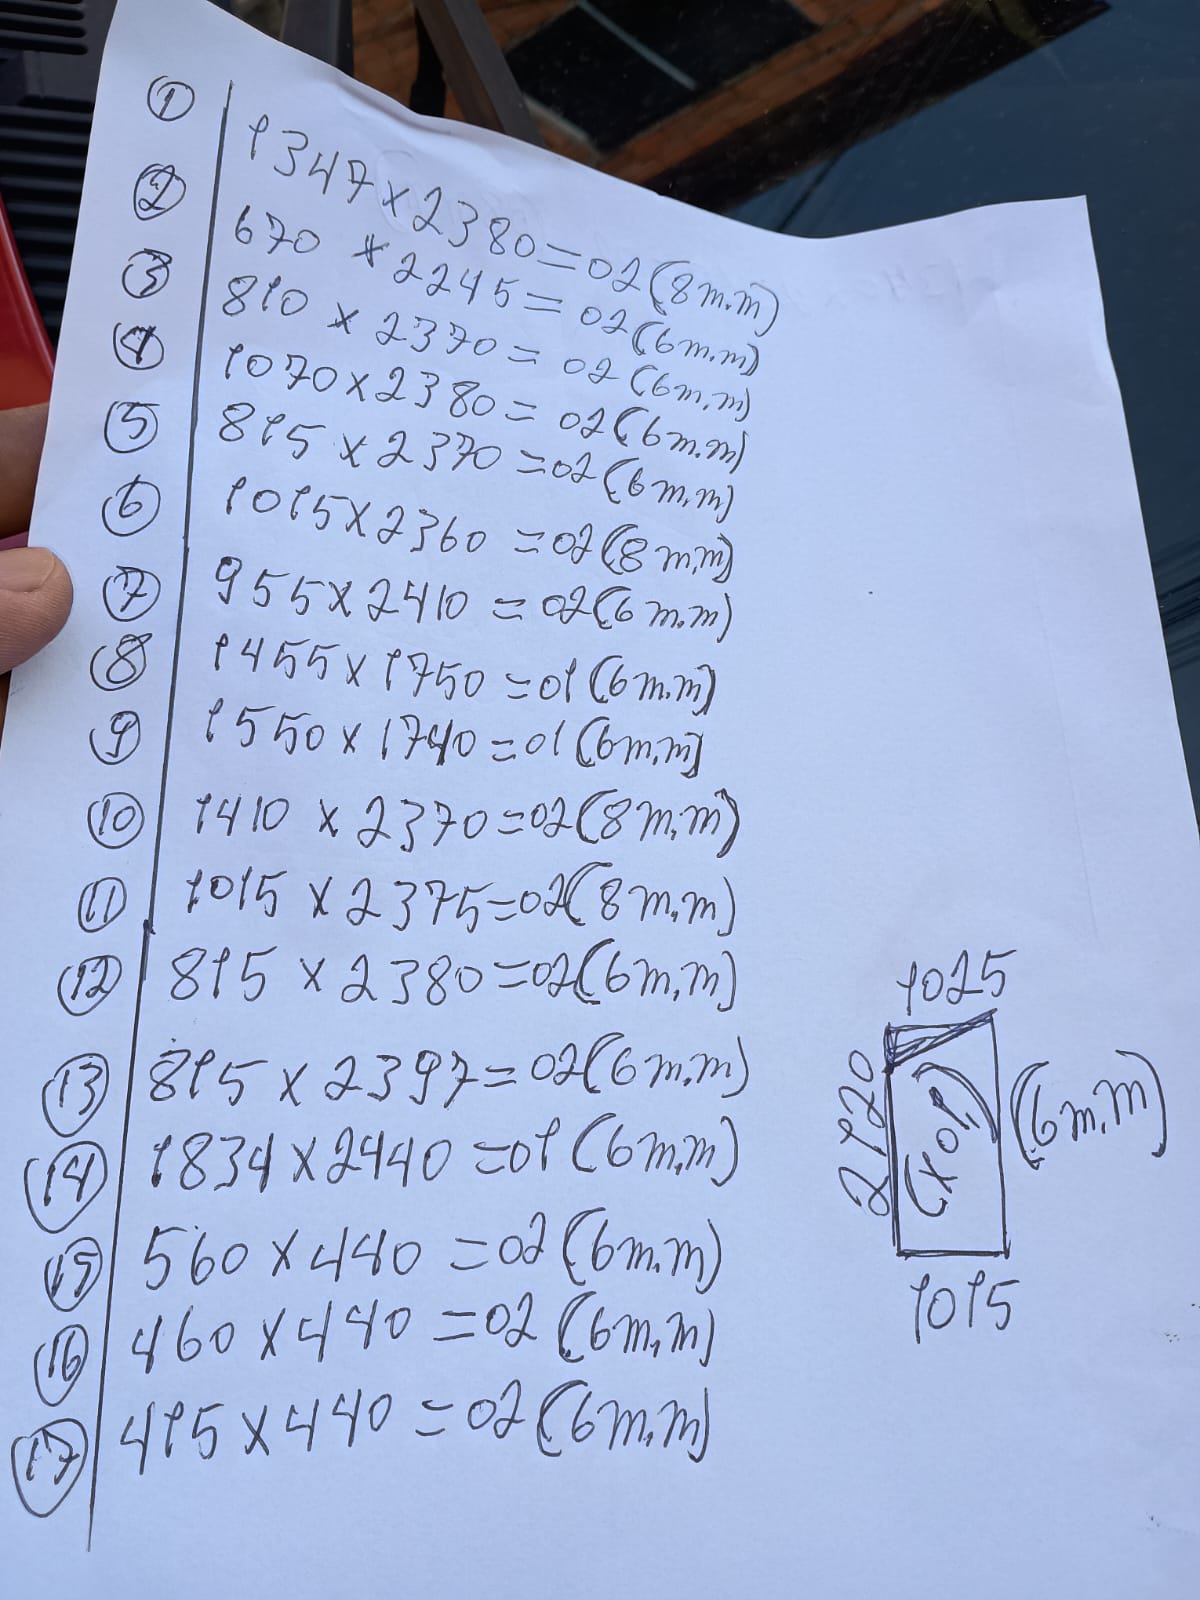 ① 1347 x 2380 = 02 (8 m.m)
② 670 x 2245 = 02 (6 m.m)
③ 810 x 2370 = 02 (6 m.m)
④ 1070 x 2380 = 02 (6 m.m)
⑤ 815 x 2370 = 02 (6 m.m)
⑥ 1015 x 2360 = 02 (8 m.m)
⑦ 955 x 2410 = 02 (6 m.m)
⑧ 1455 x 1750 = 01 (6 m.m)
⑨ 1550 x 1740 = 01 (6 m.m)
⑩ 1410 x 2370 = 02 (8 m.m)
⑪ 1015 x 2375 = 02 (8 m.m)
⑫ 815 x 2380 = 02 (6 m.m)
⑬ 815 x 2397 = 02 (6 m.m)
⑭ 1834 x 2440 = 01 (6 m.m)
⑮ 560 x 440 = 02 (6 m.m)
⑯ 460 x 440 = 02 (6 m.m)
⑰ 415 x 440 = 02 (6 m.m)
1025
2120
(x01)
(6 m.m)
1015